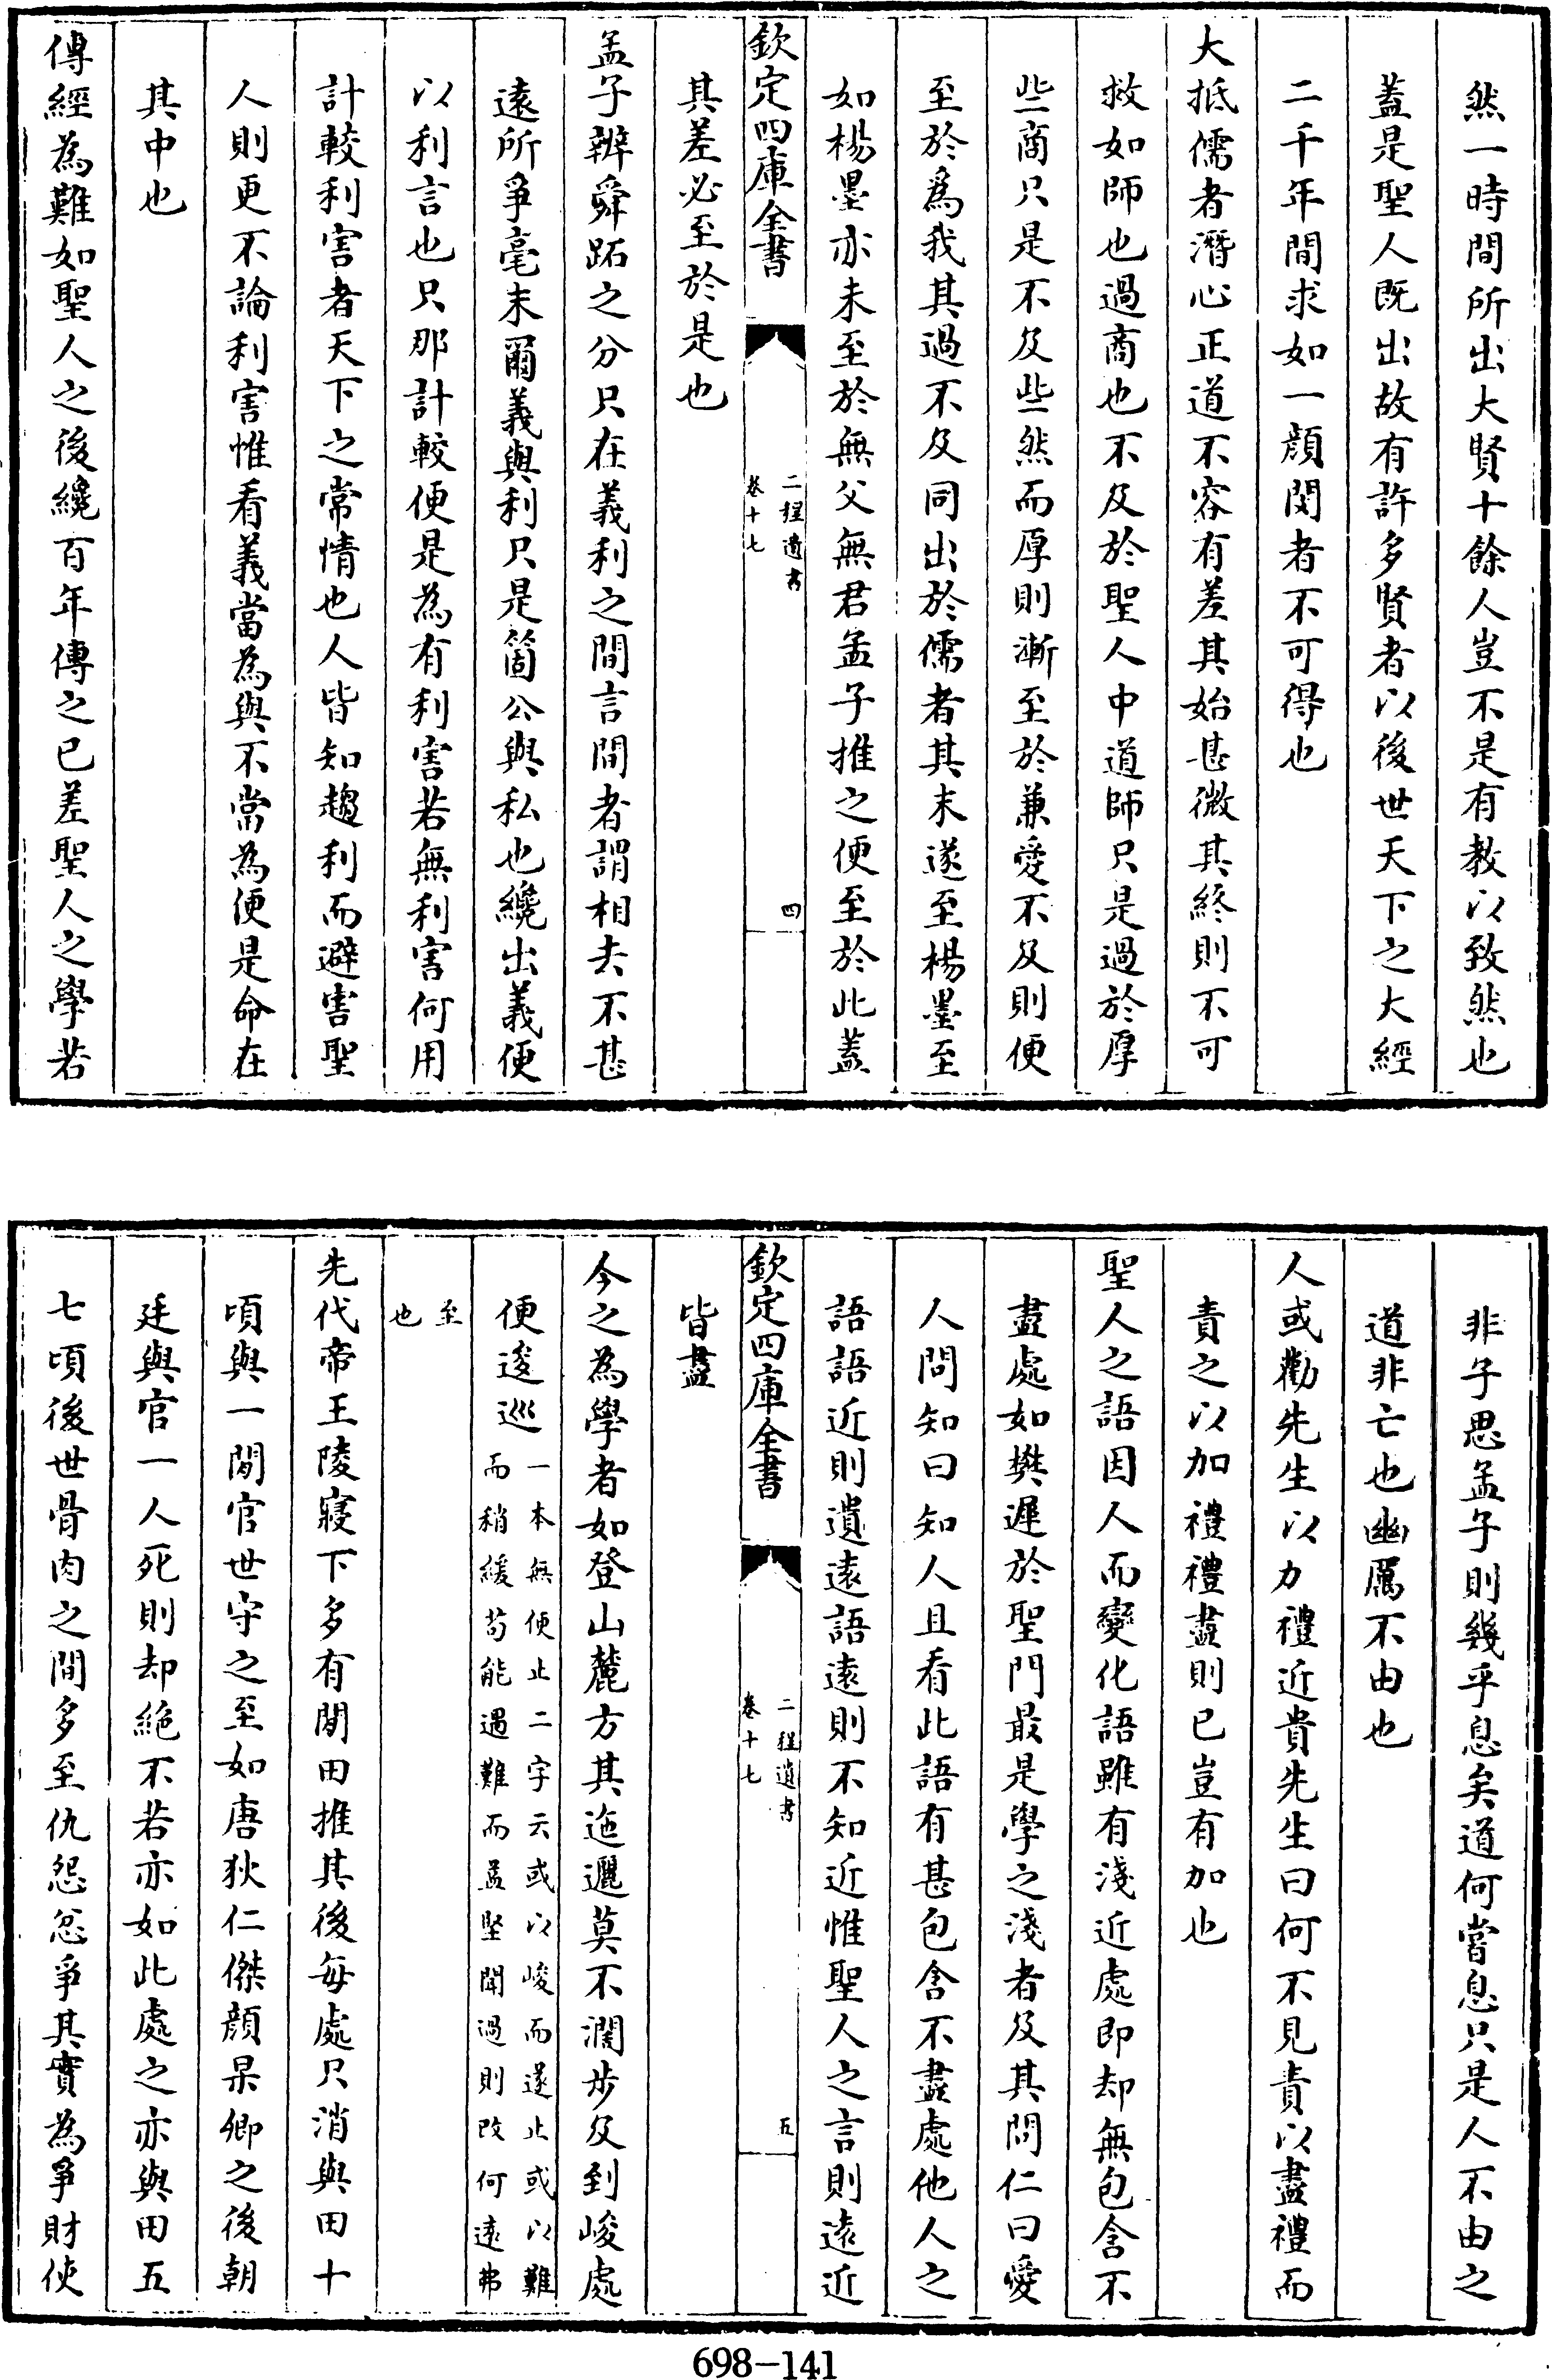 然一時間所出大賢十餘人豈不是有教以致然也
蓋是聖人既出故有許多賢者以後世天下之大經
二千年間求如一顔閔者不可得也
大抵儒者潛心正道不容有差其始甚微其終則不可
救如師也過商也不及於聖人中道師只是過於厚
些商只是不及些然而厚則漸至於兼愛不及則便
至於為我其過不及同出於儒者其末遂至楊墨至
如楊墨亦未至於無父無君孟子推之便至於此蓋
欽定四庫全書
二程遺書
卷十七
四
其差必至於是也
孟子辨舜跖之分只在義利之間言間者謂相去不甚
遠所爭毫末爾義與利只是箇公與私也纔出義便
以利言也只那計較便是為有利害若無利害何用
計較利害者天下之常情也人皆知趨利而避害聖
人則更不論利害惟看義當為與不當為便是命在
其中也
傳經為難如聖人之後纔百年傳之已差聖人之學若
非子思孟子則幾乎息矣道何嘗息只是人不由之
道非亡也幽厲不由也
人或勸先生以力禮近貴先生曰何不見責以盡禮而
責之以加禮禮盡則已豈有加也
聖人之語因人而變化語雖有淺近處即却無包含不
盡處如樊遲於聖門最是學之淺者及其問仁曰愛
人問知曰知人且看此語有甚包含不盡處他人之
語語近則遺遠語遠則不知近惟聖人之言則遠近
欽定四庫全書
二程遺書
卷十七
五
皆盡
今之為學者如登山麓方其迤邐莫不濶步及到峻處
便逡巡一本無便止二字云或以峻而遂止或以難
而稍緩苟能遇難而益堅聞過則改何遠弗
至
也
先代帝王陵寢下多有閒田推其後每處只消與田十
頃與一閒官世守之至如唐狄仁傑顔杲卿之後朝
廷與官一人死則却絶不若亦如此處之亦與田五
七頃後世骨肉之間多至仇怨忿爭其實為爭財使
698-141